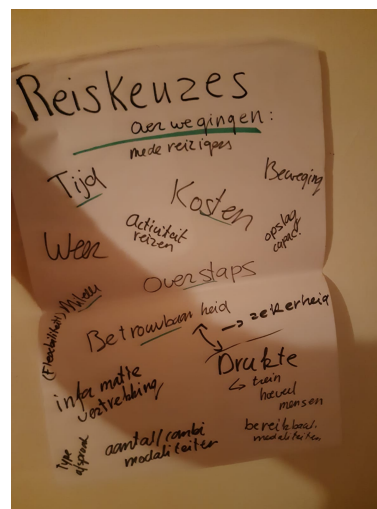 Reiskeuzes
overwegingen:
mede reizigers
Tijd
Kosten
Beweging
Weer
Activiteit
reizen
opslag
capac.
Overstaps
(Flexibiliteit) Milieu
Betrouwbaarheid
→ zekerheid
Drukte
↳ trein
heuvel
mensen
informatie
verstrekking
Type
afspraak
aantal/combi
modaliteiten
bereikbaar.
modaliteiten